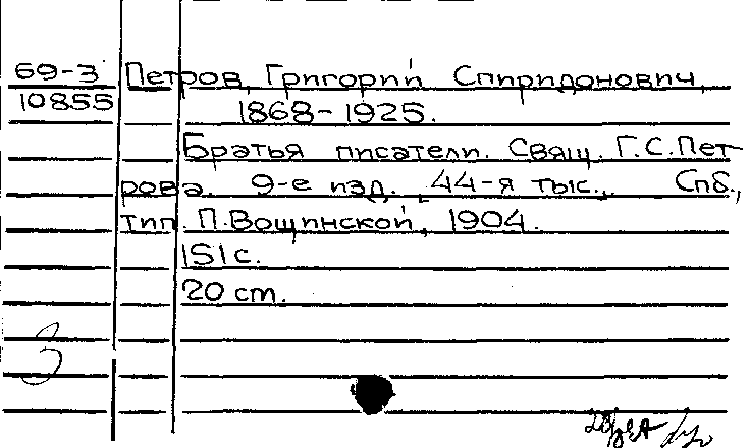 69-3 Петров, Григорий Спиридонович,
10855 1868-1925.
Братья писатели. Свящ. Г.С.Пет
рова. 9-е изд., 44-я тыс., Спб.,
тип. П.Вощинской, 1904.
151 с.
20 cm.
3